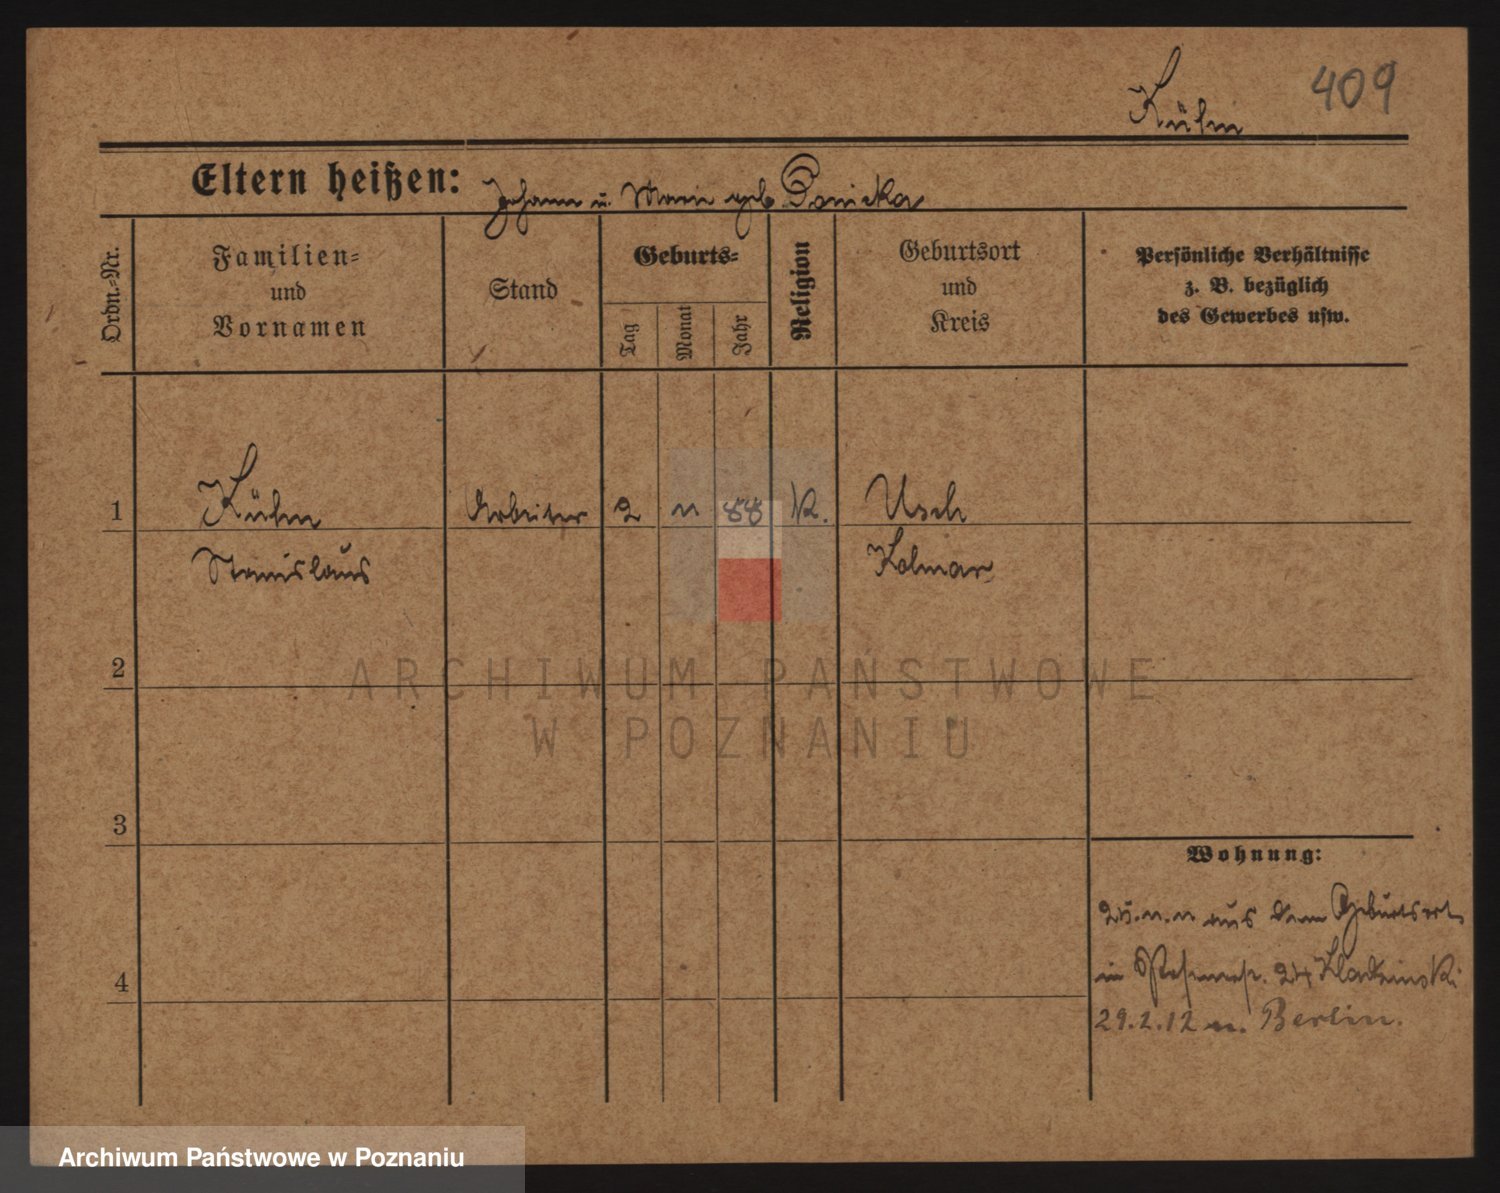 409
Kühn
Eltern heißen: Johann u. Marie geb.
Ordn.-Nr.
Familien-
und
Vornamen
Stand
Geburts-
Tag
Monat
Jahr
Religion
Geburtsort
und
Kreis
Persönliche Verhältnisse
z. B. bezüglich
des Gewerbes usw.
1 Kühn Arbeiter 2 11 88 K. Usch
Stanislaus Kolmar
2
ARCHIWUM PAŃSTWOWE
W POZNANIU
3
Wohnung:
aus dem Geburtsort
4
in 24
29.2.12 n. Berlin.
Archiwum Państwowe w Poznaniu